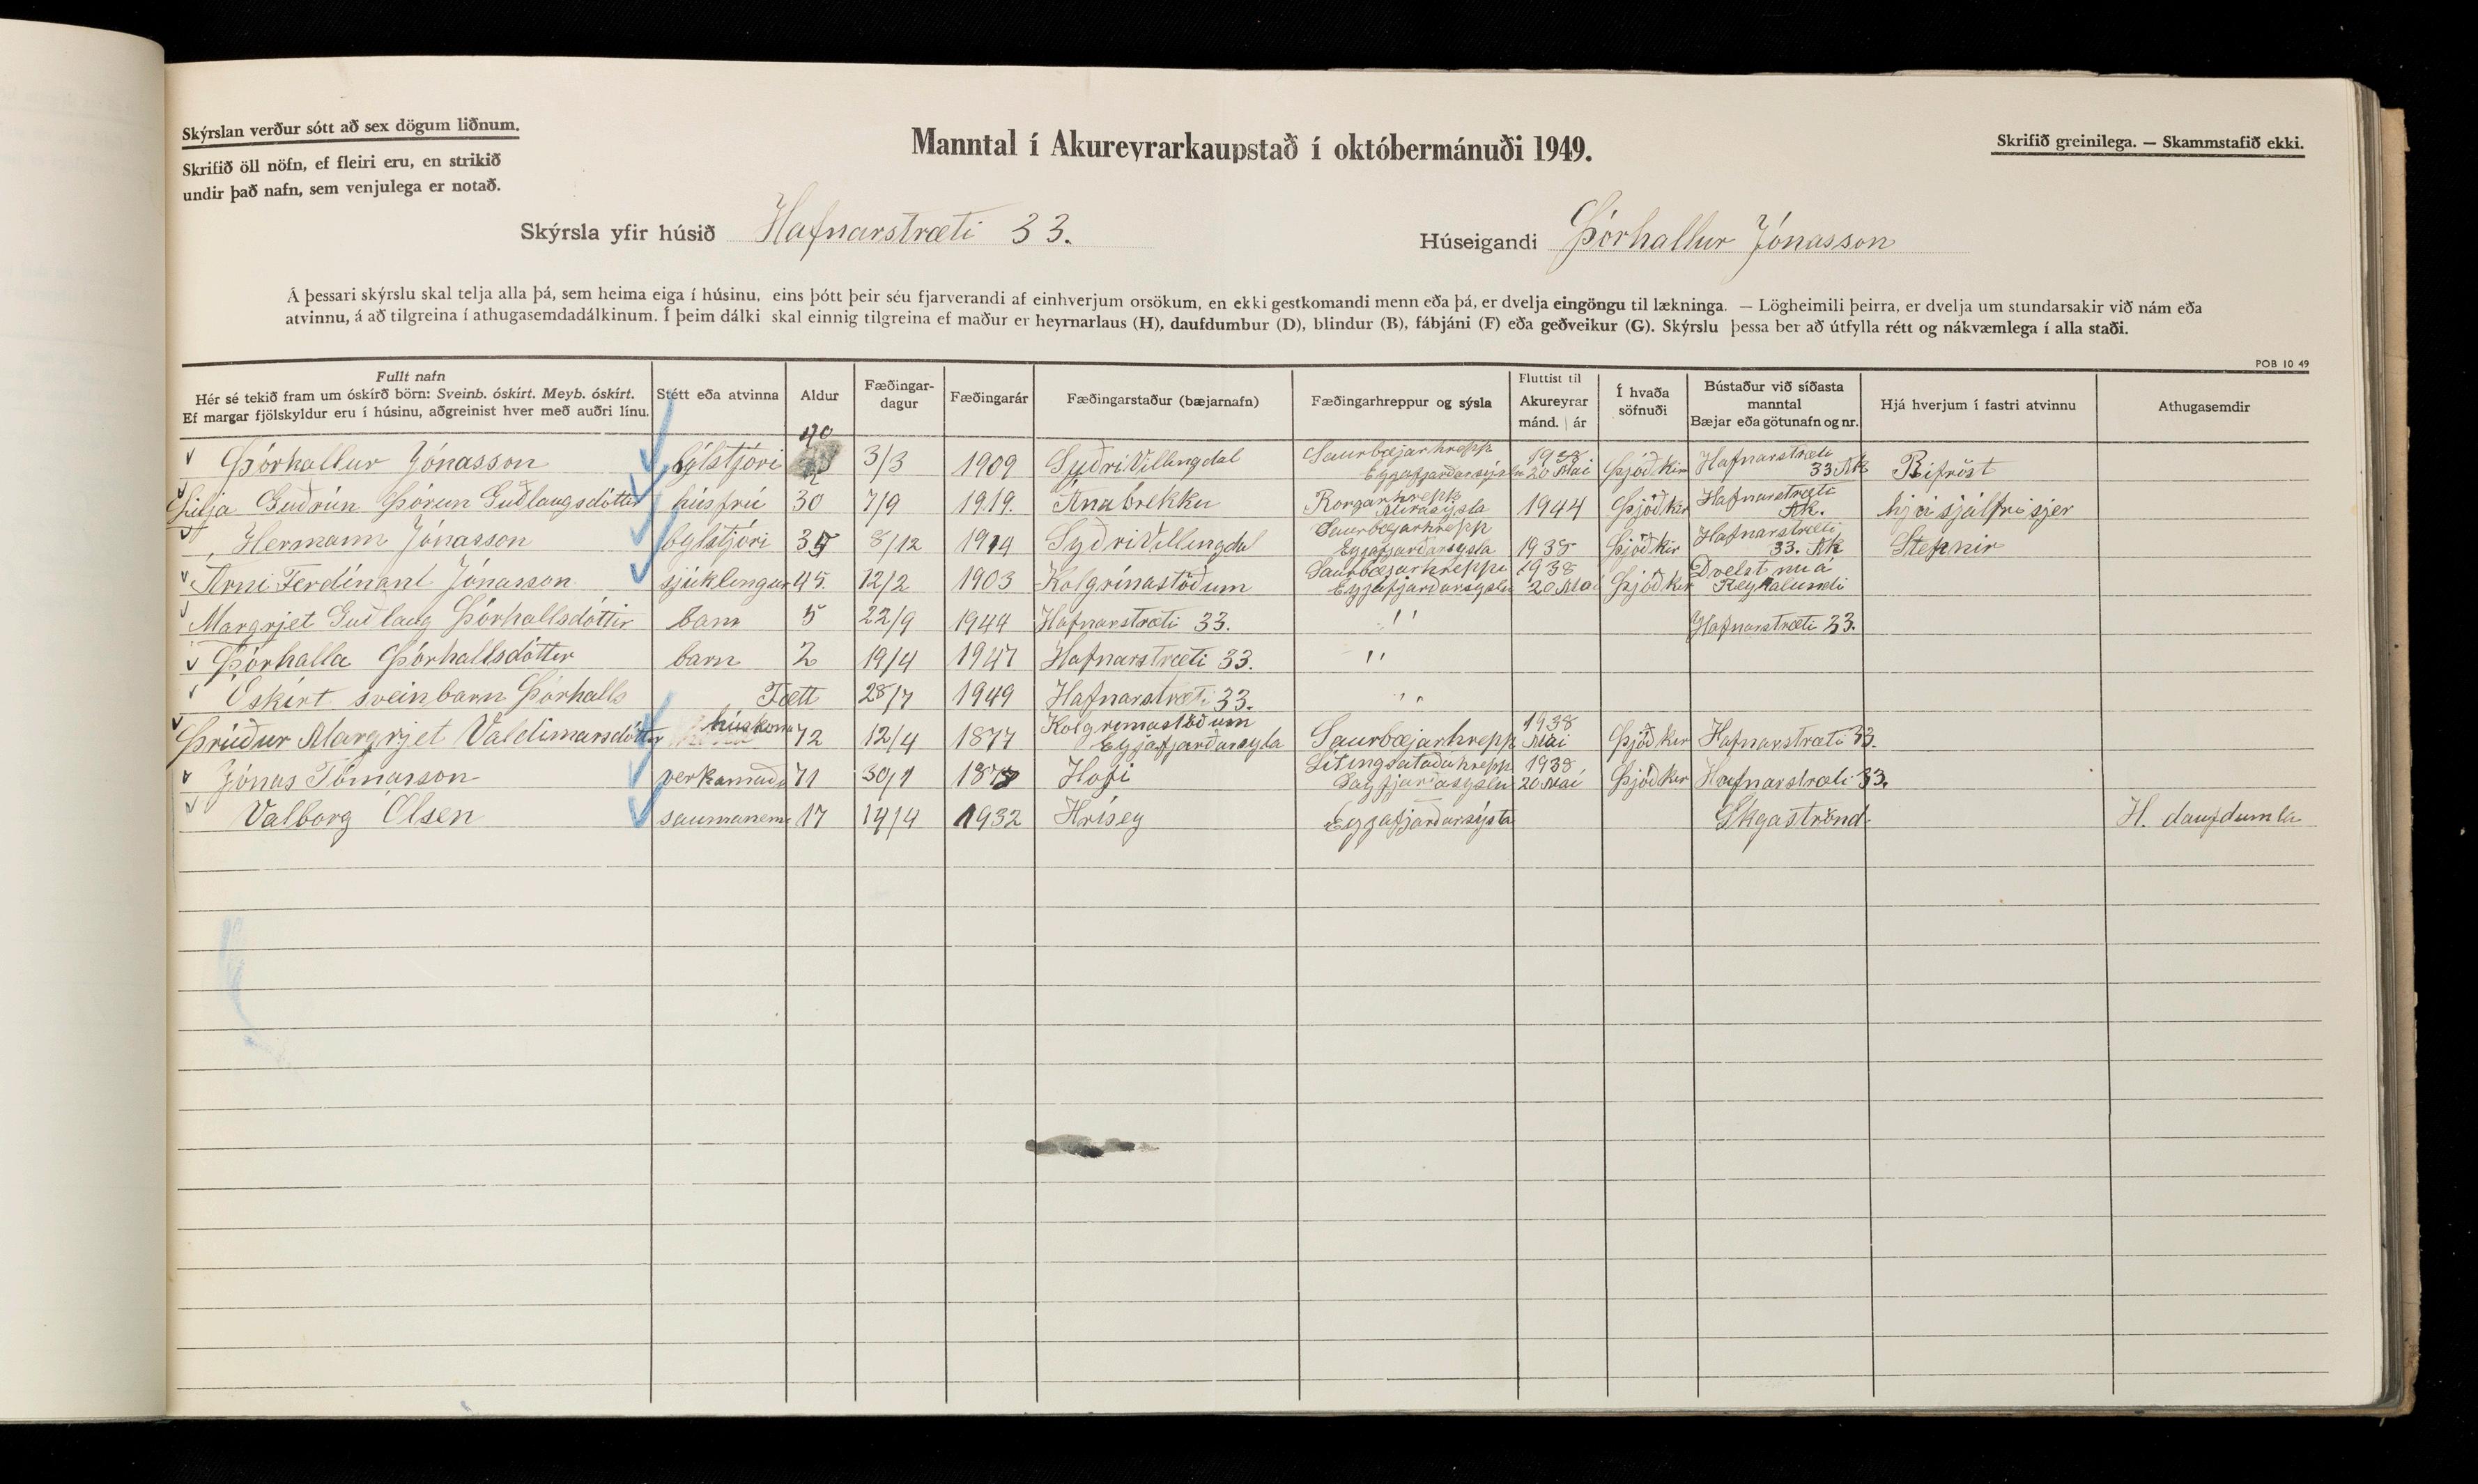 Skýrslan verður sótt að sex dögum liðnum.
Skrifið öll nöfn, ef fleiri eru, en strikið
undir það nafn, sem venjulega er notað.
Manntal í Akureyrarkaupstað í októbermánuði 1949.
Skrifið greinilega. — Skammstafið ekki.
Skýrsla yfir húsið Hafnarstræti 33.
Húseigandi Þórhallur Jónasson
Á þessari skýrslu skal telja alla þá, sem heima eiga í húsinu, eins þótt þeir séu fjarverandi af einhverjum orsökum, en ekki gestkomandi menn eða þá, er dvelja eingöngu til lækninga. — Lögheimili þeirra, er dvelja um stundarsakir við nám eða
atvinnu, á að tilgreina í athugasemdadálkinum. Í þeim dálki skal einnig tilgreina ef maður er heyrnarlaus (H), daufdumbur (D), blindur (B), fábjáni (F) eða geðveikur (G). Skýrslu þessa ber að útfylla rétt og nákvæmlega í alla staði.
POB 10 49
Fullt nafn
Hér sé tekið fram um óskírð börn: Sveinb. óskírt. Meyb. óskírt.
Ef margar fjölskyldur eru í húsinu, aðgreinist hver með auðri línu.
Stétt eða atvinna
Aldur
Fæðingar-
dagur
Fæðingarár
Fæðingarstaður (bæjarnafn)
Fæðingarhreppur og sýsla
Fluttist til
Akureyrar
mánd. | ár
Í hvaða
söfnuði
Bústaður við síðasta
manntal
Bæjar eða götunafn og nr.
Hjá hverjum í fastri atvinnu
Athugasemdir
Þórhallur Jónasson bylstjóri 40 3/3 1909 Syðri Villingdal Saurbæjarhrepp Eyjafjarðarsýslu 1938 20 Mai Þjóðkir Hafnarstræti 33 Ak Bifröst
Lilja Guðrún Þórun Guðlaugsdóttir húsfrú 30 7/9 1919. Ánabrekku Borgarhrepp Mírasysla 1944 Þjóðkir Hafnarstræti Ak. hjá sjálfri sjer
Hermann Jónasson bylstjóri 34 8/12 1914 Syðri Villingdal Saurbæjarhrepp Eyjafjarðarsysla 1938 Þjóðkir Hafnarstræti 33. Ak Stefnir
Árni Ferdínand Jónasson sjúklingur 45. 12/2 1903 Kolgrínastöðum Saurbæjarhreppi Eyjafjarðarsyslu 1938 20 Mai Þjóðkir Dvelst nú á Reykalundi
Margrjet Guðlaug Þórhallsdóttir barn 5 22/9 1944 Hafnarstræti 33. " Hafnarstræti 33.
Þórhalla Þórhallsdóttir barn 2 19/4 1947 Hafnarstræti 33. "
Óskírt sveinbarn Þórhalls Fætt 28/7 1949 Hafnarstræti 33. "
Þrúður Margrjet Valdimarsdóttir húskona 72 12/4 1877 Kolgrimastöðum Eyjafjarðarsyla Saurbæjarhrepp 1938 Mai Þjóðkir Hafnarstræti 33.
Jónas Tómasson verkamaður 71 30/1 1878 Hofi Lítingsstaðahrepp Sagfjarðasyslu 1938 20 Mai Þjóðkir Hafnarstræti 33.
Valborg Olsen saumanemi 17 14/4 1932 Hrísey Eyjafjarðarsýsla Skgaströnd. H. daufdumba